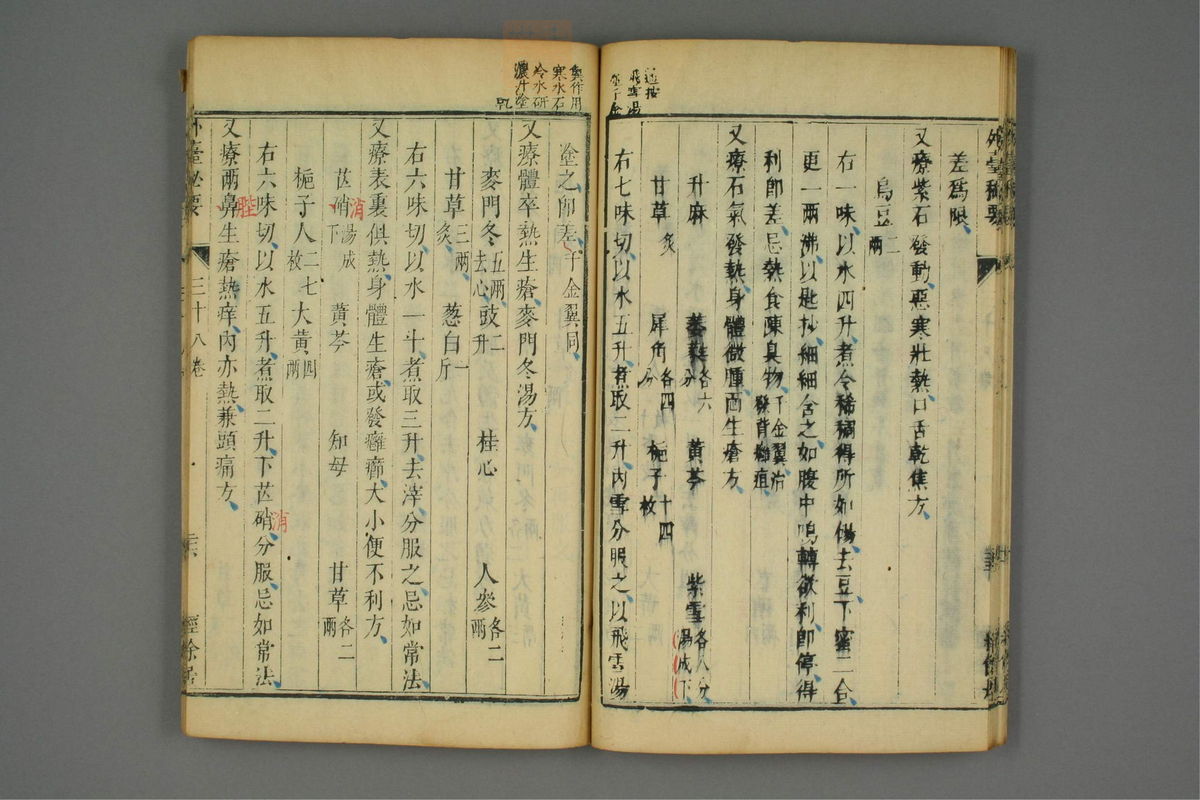 外臺秘要
差為限
又療紫石發動惡寒壯熱口舌乾焦方
烏豆二兩
右一味以水四升煮令稀稠得所如餳去豆下蜜二合
更一兩沸以匙抄細細含之如腹中鳴轉欲利即停得
利即差忌熱食陳臭物千金翼治發背癰疽
又療石氣發熱身體微腫面生瘡方
升麻 各六分 黃芩 紫雪各八分湯成下
甘草炙 犀角各四分 梔子十四枚
右七味切以水五升煮取二升內雪分服之以飛雪湯
按
飛雪湯
千金
翼作用
寒水石
冷水研
濃汁塗
塗之即差千金翼同
又療體卒熱生瘡麥門冬湯方
麥門冬五兩去心 豉二升 桂心 人參各二兩
甘草三兩炙 蔥白一斤
右六味切以水一斗煮取三升去滓分服之忌如常法
又療表裏俱熱身體生瘡或發癰癤大小便不利方
芒硝湯成下 黃芩 知母 甘草各二兩
消
梔子人二七枚 大黃四兩
右六味切以水五升煮取二升下芒硝分服忌如常法
消
又療兩鼻生瘡熱痒內亦熱兼頭痛方
外臺秘要 三十八卷 經餘居